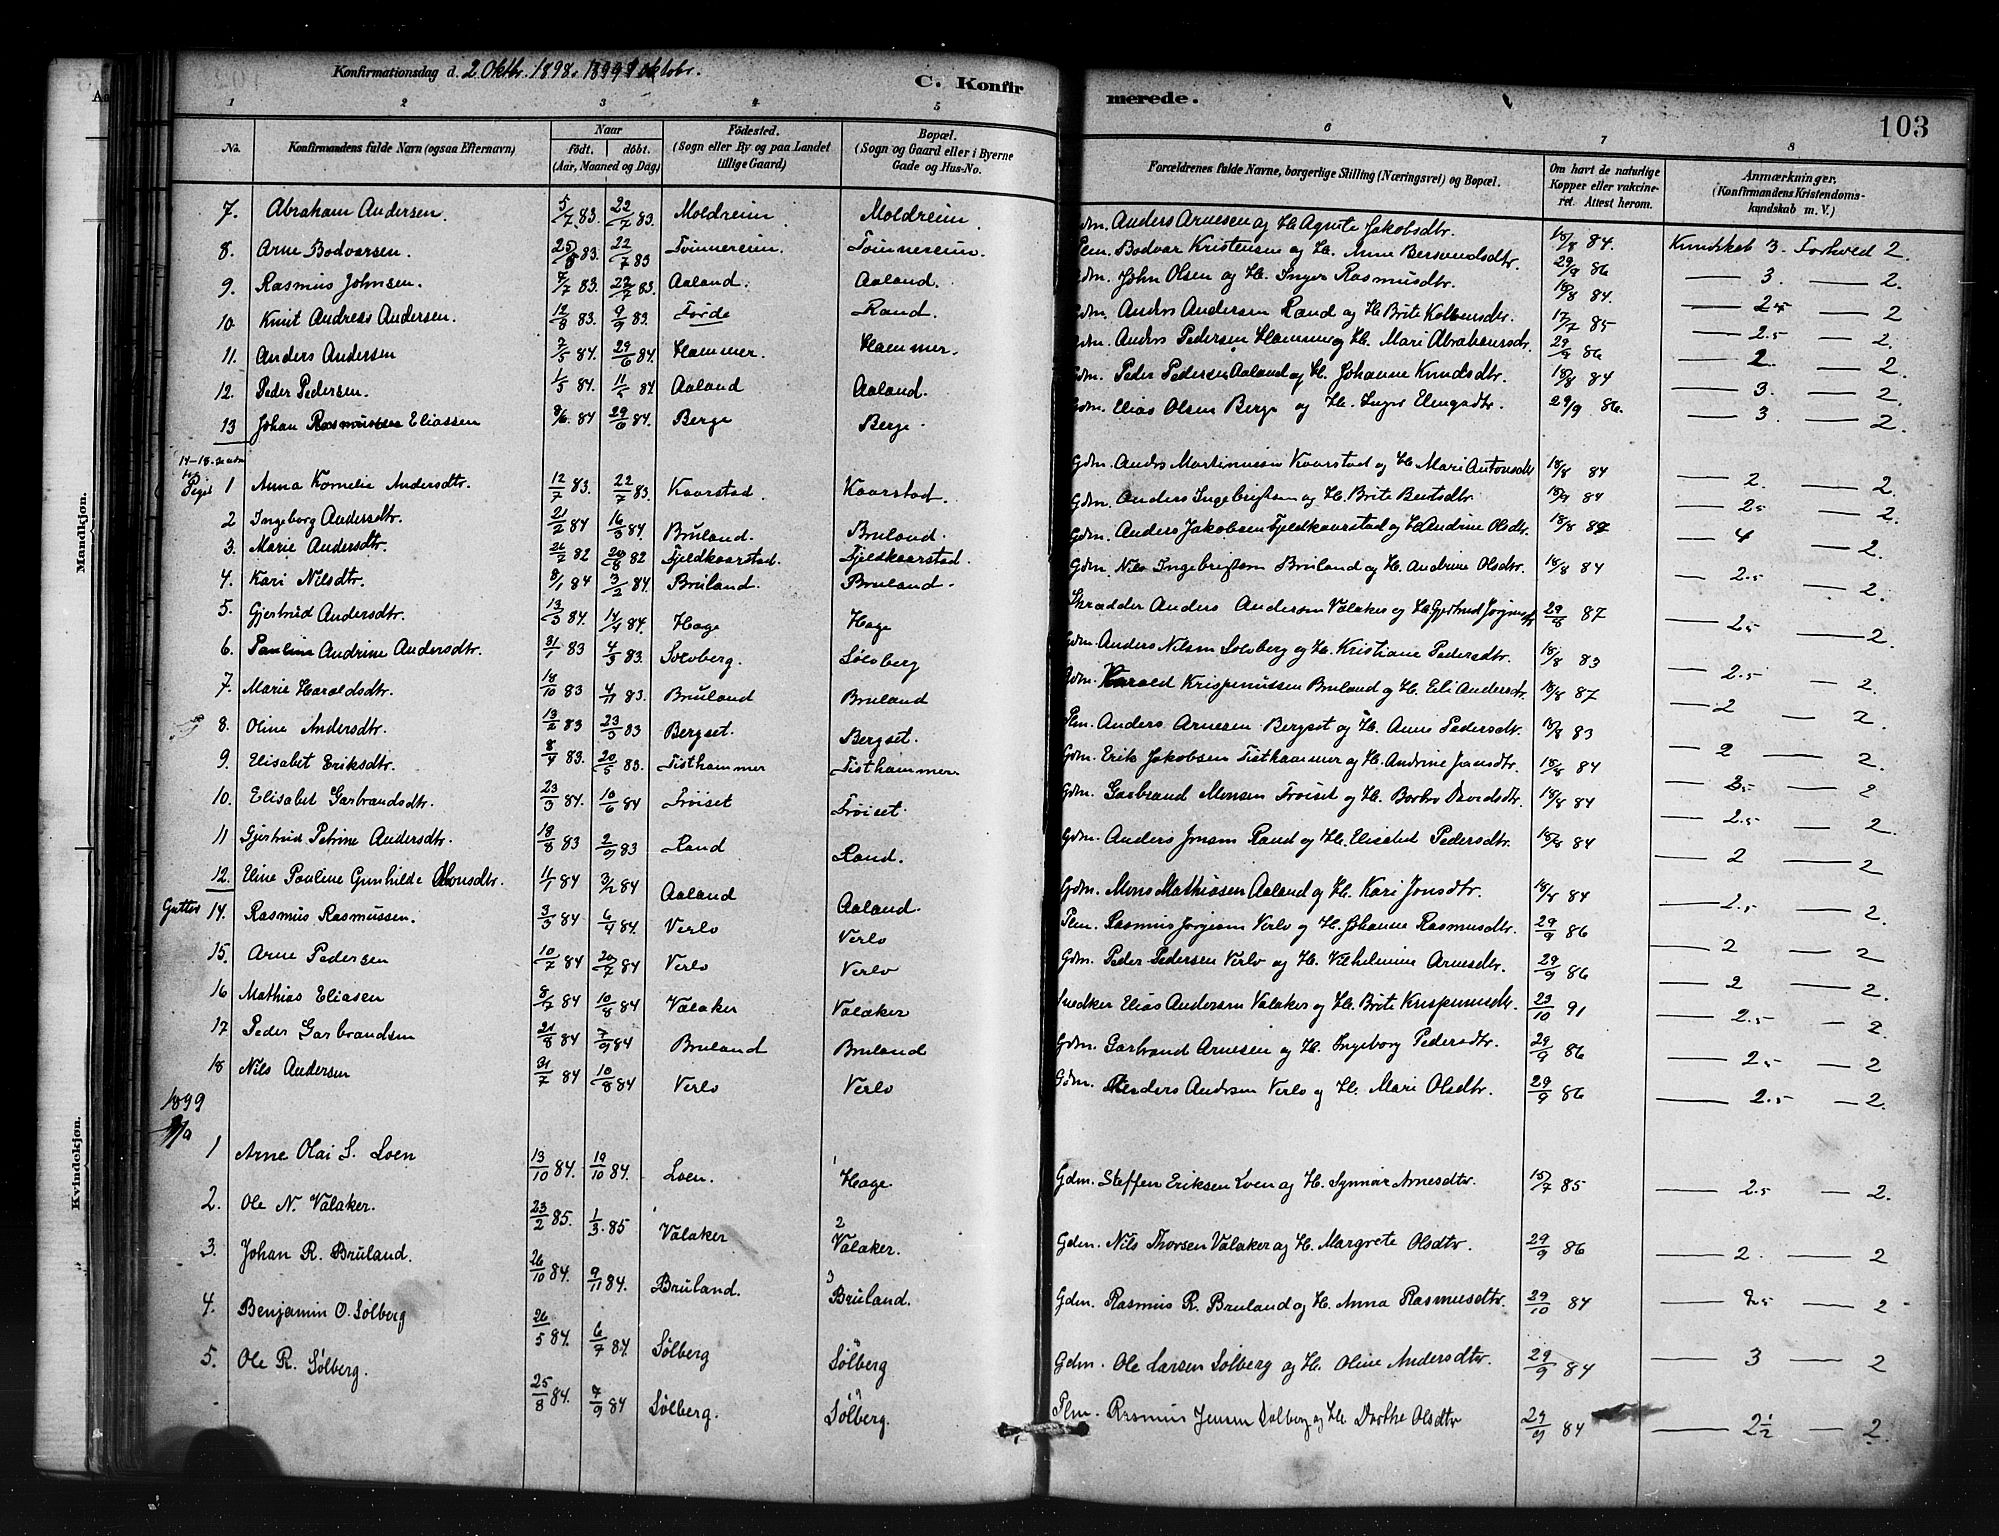 Konfirmationsdag d. 2 Oktbr. 1898. 1899 1 oktobr.
C. Konfirmerede.
103
1 2 3 4 5 6 7 8
No. Konfirmandens fulde Navn (ogsaa Efternavn) Naar Födt. döbt. (Aar, Maaned og Dag) Födested. (Sogn eller By og paa Landet tillige Gaard) Bopæl. (Sogn og Gaard eller i Byerne Gade og Hus-No. Forældrenes fulde Navne, borgerlige Stilling (Næringsvei) og Bopæl. Om havt de naturlige Kopper eller vakcineret. Attest herom. Anmærkninger, (Konfirmandens Kristendomskundskab m. V.)
7. Abraham Andersen. 5/7 83. 22/7 83. Moldreim Moldreim Gdm. Anders Arnesen og H. Agnete Jakobsdtr. 18/8 84. Kundskab 3. Forhved 2.
8. Arne Bodvarsen. 22/7 83 Tvinnereim Tvinnereim. Plm. Bodvar Kristensen og H. Anne Bersvendsdtr. 29/9 86 — 3. — 2.
9. Rasmus Johnsen. 7/7 83. 22/7 83. Aaland. Aaland. Gdm. John Olsen og H. Inger Rasmusdtr. 18/8 84. — 2.5 — 2
10. Knut Andreas Andersen. 12/8 83. 9/9 83. Förde Rand. Gdm. Anders Andersen Rand og H. Brite 17/7 85 — 2.5 — 2.
11. Anders Andersen 7/5 84. 29/6 84. Hammer. Hammer. Gdm. Anders Pedersen Hammer og H. Mari Abrahamsdr. 29/9 86 — 2. — 2.
12. Peder Pedersen. 1/5 84. 11/5 84 Aaland Aaland. Gdm. Peder Pedersen Aaland og H. Johanne Knudsdtr. 18/8 84 — 3. — 2.
13 Johan Rasmussen Eliassen 8/6. 84 29/6 84. Berge Berge. Gdm. Elias Olsen Berge og H. Inger 29/9 86. — 3. — 2.
14-18. se nedenfor
Piger 1 Anna Kornelia Andersdtr. 12/7 83. 22/7 83. Kaarstad. Kaarstad. Gdm. Anders Martinusen Kaarstad og H. Mari Antonsdtr 18/8 84 — 2. — 2.
2 Ingeborg Andersdtr. 21/2 84 16/3 84. Bruland. Bruland. Gdm. Anders Ingebrigtsen og H. Brite Bertsdtr. 18/9 84 — 2.5 — 2.
3. Marie Andersdtr. 21/7 82 20/8 82 Fjeldkaarstad. Fjeldkaarstad. Gdm. Anders Jakobsen Fjeldkaarstad og H. Andrine Olsdtr. — 4 — 2.
4. Kari Nilsdtr. 8/1 84 3/2 84. Bruland. Bruland. Gdm. Nils Ingebrigtsen Bruland og H. Andrine Olsdtr. 18/8 84 — 2.5 — 2.
5. Gjertrud Andersdtr. 13/3 84. 14/4 84. Hage Hage Skrædder Anders Andersen Valaker og H. Gjertrud 29/8 87 — 2.5 — 2.
6. Pauline Andrine Andersdtr. 31/1 83 4/3 83. Solvberg. Sølvberg Gdm. Anders Nilsen Solvberg og H. Kristiane Pedersdtr. 18/8 83 — 2.5 — 2.
7. Marie Haraldsdtr. 18/10 83 4/11 83. Bruland Bruland Gdm. Harald Krispinussen Bruland og H. Eli Andersdtr 18/8 87 — 2 — 2.
8. Oline Andersdtr. 13/2 83 23/3 83 Bergset. Bergset. Plm. Anders Arnesen Bergset og H. Anne Pedersdtr. 18/8 83 — 2 — 2.
9. Elisabet Eriksdtr. 8/4 83. 20/5 83. Tisthammer Tisthammer. Gdm. Erik Jakobsen Tisthammer og H. Andrine Jonsdtr. 18/8 84 — 2.5 — 2
10. Elisabet Garbrandsdtr. 23/3 84. 10/6 84 Trøiset Trøiset. Gdm. Garbrand Monsen Trøiset og H. Barbro Davidsdtr. 18/8 84 — 2.5 — 2.
11 Gjertrud Petrine Andersdtr. 18/8 83 2/9 83 Rand Rand. Gdm. Anders Jonsen Rand og H. Elisabet Pedersdtr. 18/8 84 — 2 — 2
12. Eline Pauline Gunhilde Monsdtr. 11/1 84 3/2 84 Aaland Aaland. Gdm. Mons Mathiasen Aaland og H. Kari Jonsdtr. 18/8 84 — 2.5 — 2.
Gutter 14. Rasmus Rasmussen. 3/3 84 6/4 84. Verlo Verlo Plm. Rasmus Jørgensen Verlo og H. Johanne Rasmusdtr. 29/9 86 — 2 — 2
15. Arne Pedersen 10/7 84 20/7 84 Verlo Verlo Gdm. Peder Pedersen Verlo og H. Vilhelmine Arnesdtr. 29/9 86 — 2 — 2.
16 Mathias Eliasen 8/7 84 10/8 84 Valaker Valaker Snedker Elias Andersen Valaker og H. Brite Krispinusdtr. 23/10 91 — 2.5 — 2.
17 Peder Garbrandsen 21/8 84 7/9 84 Bruland Bruland Gdm. Garbrand Arnesen og H. Ingeborg Pedersdtr. 29/9 86 — 2.5 — 2
18 Nils Andersen 31/7 84 10/8 84 Verlo Verlo Gdm. Anders Andersen Verlo og H. Mari Olsdtr. 29/9 86 — 2.5 — 2.
1899
1 Arne Olai S. Loen 13/10 84. 19/10 84. Loen. 1 Hage Gdm. Steffen Eriksen Loen og H. Synnøv Arnesdtr. 15/7 85 — 2.5 — 2.
2. Ole N. Valaker. 23/2 85. 1/3. 85 Valaker 2 Valaker. Gdm. Nils Thorsen Valaker og H. Margrete Olsdtr. 29/9 86 — 2. — 2
3. Johan R. Bruland. 26/10 84. 9/11 84. Bruland. 3 Bruland. Gdm. Rasmus R. Bruland og H. Anna Rasmusdtr. 29/10 84 — 2.5 — 2
4. Benjamin O. Sølberg 26/5 84. 6/7 84. Sølberg Sølberg Gdm. Ole Larsen Sølberg og H. Oline Andersdtr. 29/9 84 — 3 — 2
5. Ole R. Sølberg. 25/8 84. 7/9 84 Sølberg. Sølberg. Plm. Rasmus Jensen Sølberg og H. Dorthe Olsdtr 29/9 84 — 2 1/2 — 2.
Mandkjøn.
Kvindekjøn.